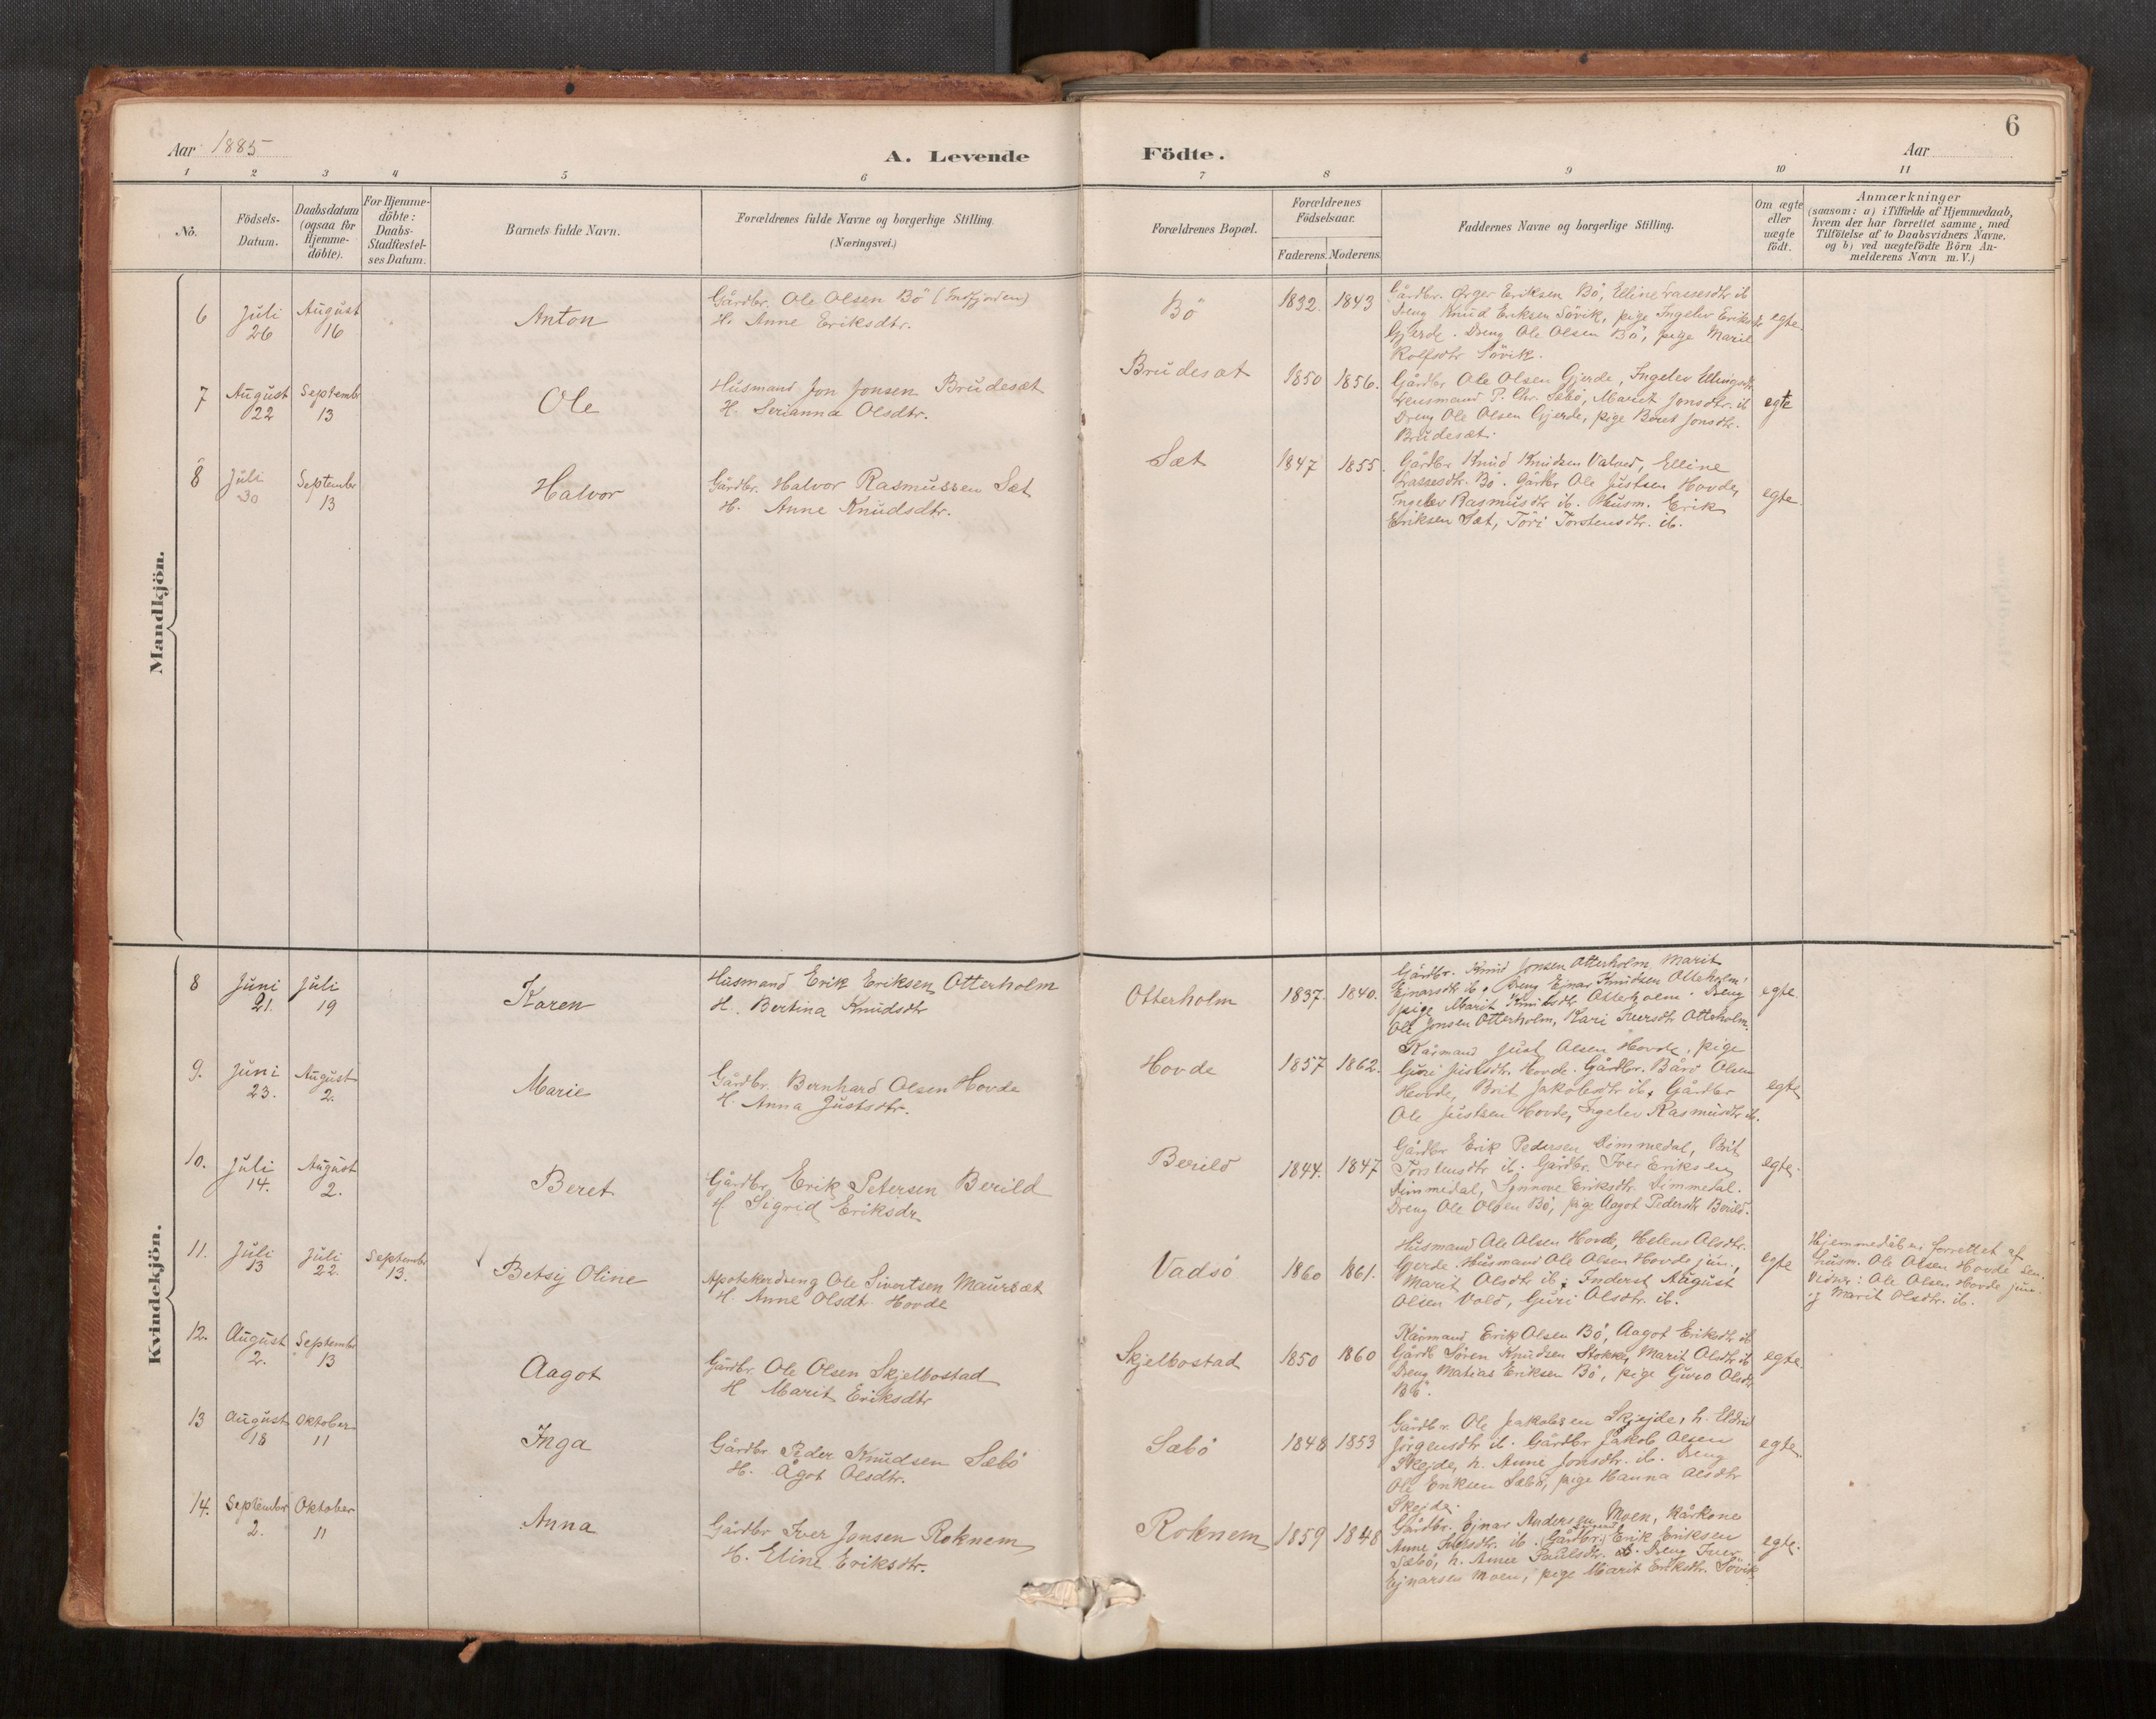 6
Aar 1885
A. Levende Födte.
Aar
1 2 3 4 5 6 7 8 9 10 11
No.
Födsels-
Datum.
Daabsdatum
(ogsaa for
Hjemme-
döbte).
For Hjemme-
döbte:
Daabs-
Stadfæstel-
ses Datum.
Barnets fulde Navn.
Forældrenes fulde Navne og borgerlige Stilling.
(Næringsvei.)
Forældrenes Bopæl.
Forældrenes
Födselsaar.
Faderens. Moderens.
Faddernes Navne og borgerlige Stilling.
Om ægte
eller
uægte
födt.
Anmærkninger
(saasom: a) i Tilfælde af Hjemmedaab,
hvem der har forrettet samme, med
Tilföielse af to Daabsvidners Navne,
og b) ved uægtefödte Börn An-
melderens Navn m. V.)
Mandkjön.
6
Juli
26
August
16
Anton
Gårdbr. Ole Olsen Bö (Indfjorden)
H. Anne Eriksdtr.
Bö
1832. 1843
Gårdbr. Eriksen Bö, Elline Lassesdtr ib
Dreng Knud Eriksen Sövik, pige Ingelev Eriksdtr
Gjerde. Dreng Ole Olsen Bö, pige Marit
Rolfsdtr Sövik.
egte
7
August
22
September
13
Ole
Husmand Jon Jonsen Brudesæt
H. Serianna Olsdtr.
Brudesæt
1850 1856.
Gårdbr Ole Olsen Gjerde, Ingelev Ellingsdtr.
Lensmand P. Chr. Sæbö, Marit Jonsdtr. ib
Dreng Ole Olsen Gjerde, pige Beret Jonsdtr.
Brudesæt.
egte
8
Juli
30
September
13
Halvor
Gårdbr. Halvor Rasmussen Sæt
H. Anne Knudsdtr.
Sæt
1847 1855.
Gårdbr Knud Knudsen Valved, Elline
Lassesdtr. Bö. Gårdbr Ole Justsen Hovde,
Ingelev Rasmusdtr ib. Husm. Erik
Eriksen Sæt, Töri Torstensdtr. ib.
egte
Kvindekjön.
8
Juni
21.
Juli
19
Karen
Husmand Erik Eriksen Otterholm
H. Bertina Knudsdtr
Otterholm
1837. 1840.
Gårdbr. Knud Jonsen Otterholm, Marit
Ejnarsdtr ib. Dreng Ejnar Knudsen Otterholm,
pige Marit Knudsdtr Otterholm. Dreng
Ole Jonsen Otterholm, Kari Iversdtr Otterholm.
egte
9.
Juni
23.
August
2.
Marie
Gårdbr. Bernhard Olsen Hovde
H. Anna Justsdtr.
Hovde
1857 1862.
Kårmand Just Olsen Hovde, pige
Guri Justsdtr. Hovde. Gårdbr. Bård Olsen
Hovde, Brit Jakobsdtr ib. Gårdbr
Ole Justsen Hovde, Ingelev Rasmusdtr ib.
egte
10.
Juli
14.
August
2.
Beret
Gårdbr. Erik Petersen Berild
H. Sigrid Eriksdr
Berild
1844. 1847
Gårdbr Erik Pedersen Dimmedal, Brit
Torstensdtr ib. Gårdbr. Iver Eriksen
Dimmedal, Synnove Eriksdtr. Dimmedal.
Dreng Ole Olsen Bö, pige Aagot Pedersdtr Berild.
egte.
11.
Juli
13
Juli
22.
September
13.
Betsy Oline
Apotekerdreng Ole Sivertsen Maursæt
H Anne Olsdtr Hovde
Vadsö
1860 1861.
Husmand Ole Olsen Hovde, Helene Olsdtr.
Gjerde. Husmand Ole Olsen Hovde jun.,
Marit Olsdtr ib. Inderst August
Olsen Vold, Guri Olsdtr. ib.
egte
Hjemmedåben forrettet af
Husm. Ole Olsen Hovde sen.
Vidner: Ole Olsen Hovde jun.
og Marit Olsdtr. ib.
12.
August
2.
September
13
Aagot
Gårdbr. Ole Olsen Skjelbostad
H Marit Eriksdtr
Skjelbostad
1850 1860
Kårmand Erik Olsen Bö, Aagot Eriksdtr ib
Gårdb Sören Knudsen Stokke, Marit Olsdtr ib
Dreng Matias Eriksen Bö, pige Guro Olsdtr
Bö.
egte.
13
August
18
Oktober
11
Inga
Gårdbr Peder Knudsen Sæbö
H. Ågot Olsdtr.
Sæbö
1848 1853
Gårdbr. Ole Jakobsen Skjejde, h. Eldrid
Jörgensdtr ib. Gårdbr Jakob Olsen
Skejde, h. Anne Jonsdtr. ib. Dreng
Ole Eriksen Sæbö, pige Hanna Olsdtr
Skejde.
egte.
14.
September
2.
Oktober
11
Anna
Gårdbr Iver Jonsen Roknem
H. Eline Eriksdtr.
Roknem
1859 1848
Gårdbr. Ejnar Andersen Moen, kårkone
Anne ib. Gårdbr. Erik Eriksen
Sæbö, h. Anne Paulsdtr. Dreng Iver
Ejnarsen Moen, pige Marit Eriksdtr. Sövik
egte.